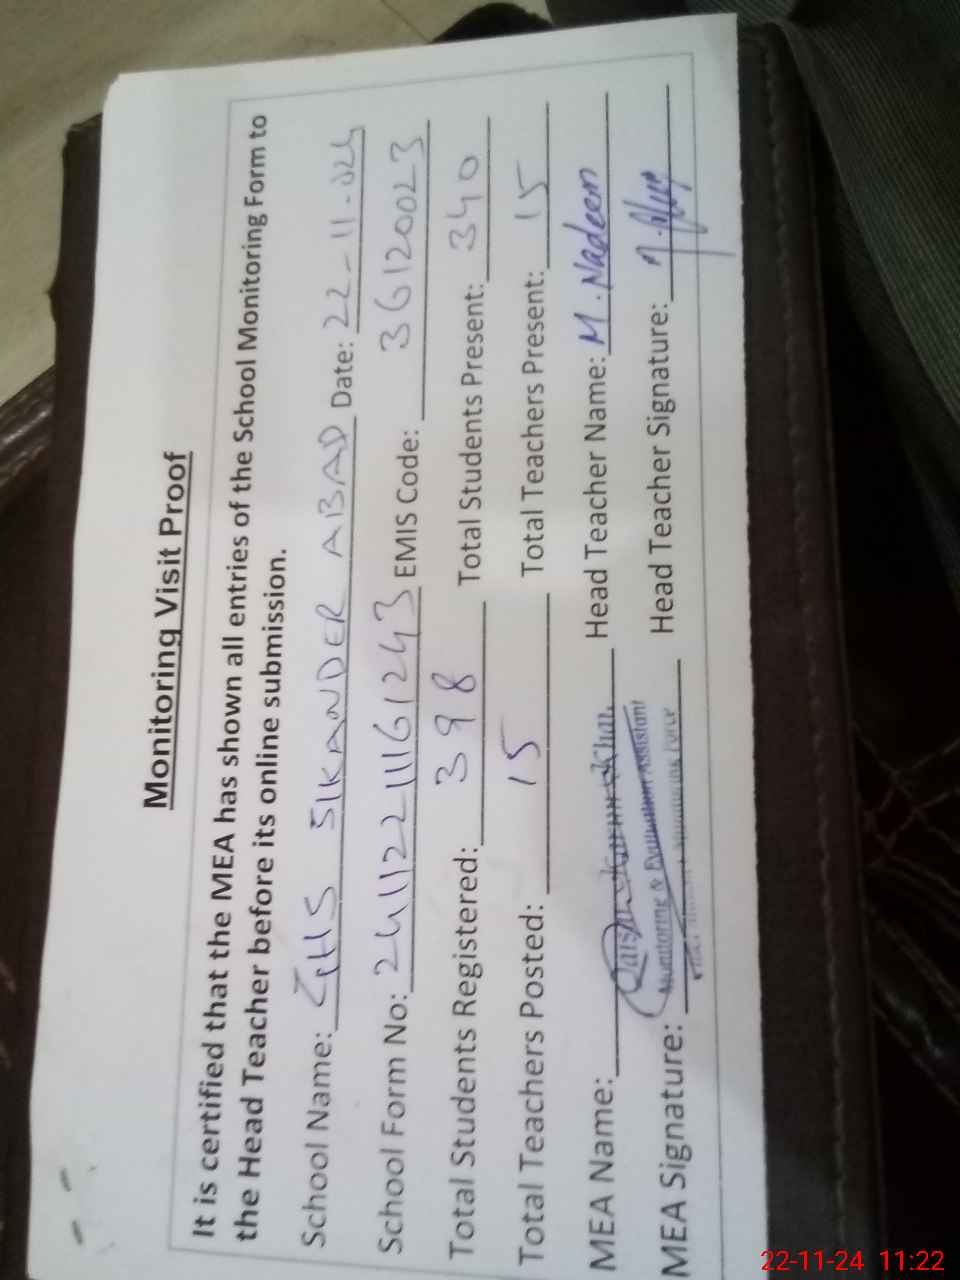 Monitoring Visit Proof
It is certified that the MEA has shown all entries of the School Monitoring Form to
the Head Teacher before its online submission.
School Name: GHS SIKANDER ABAD Date: 22-11-024
School Form No: 24112211161243 EMIS Code: 36120023
Total Students Registered: 398 Total Students Present: 340
Total Teachers Posted: 15 Total Teachers Present: 15
MEA Name: Khan Head Teacher Name: M. Nadeem
Monitoring & Evaluation Assistant
MEA Signature: Head Teacher Signature:
22-11-24 11:22